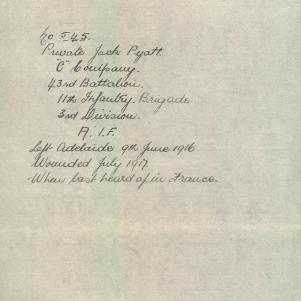 No 545.
Private Jack Pyatt.
"C" Company.
43rd Battalion.
11th Infantry Brigade
3rd Division.
A. I. F.
Left Adelaide 9th June 1916
Wounded July 1917.
When last heard of in France.